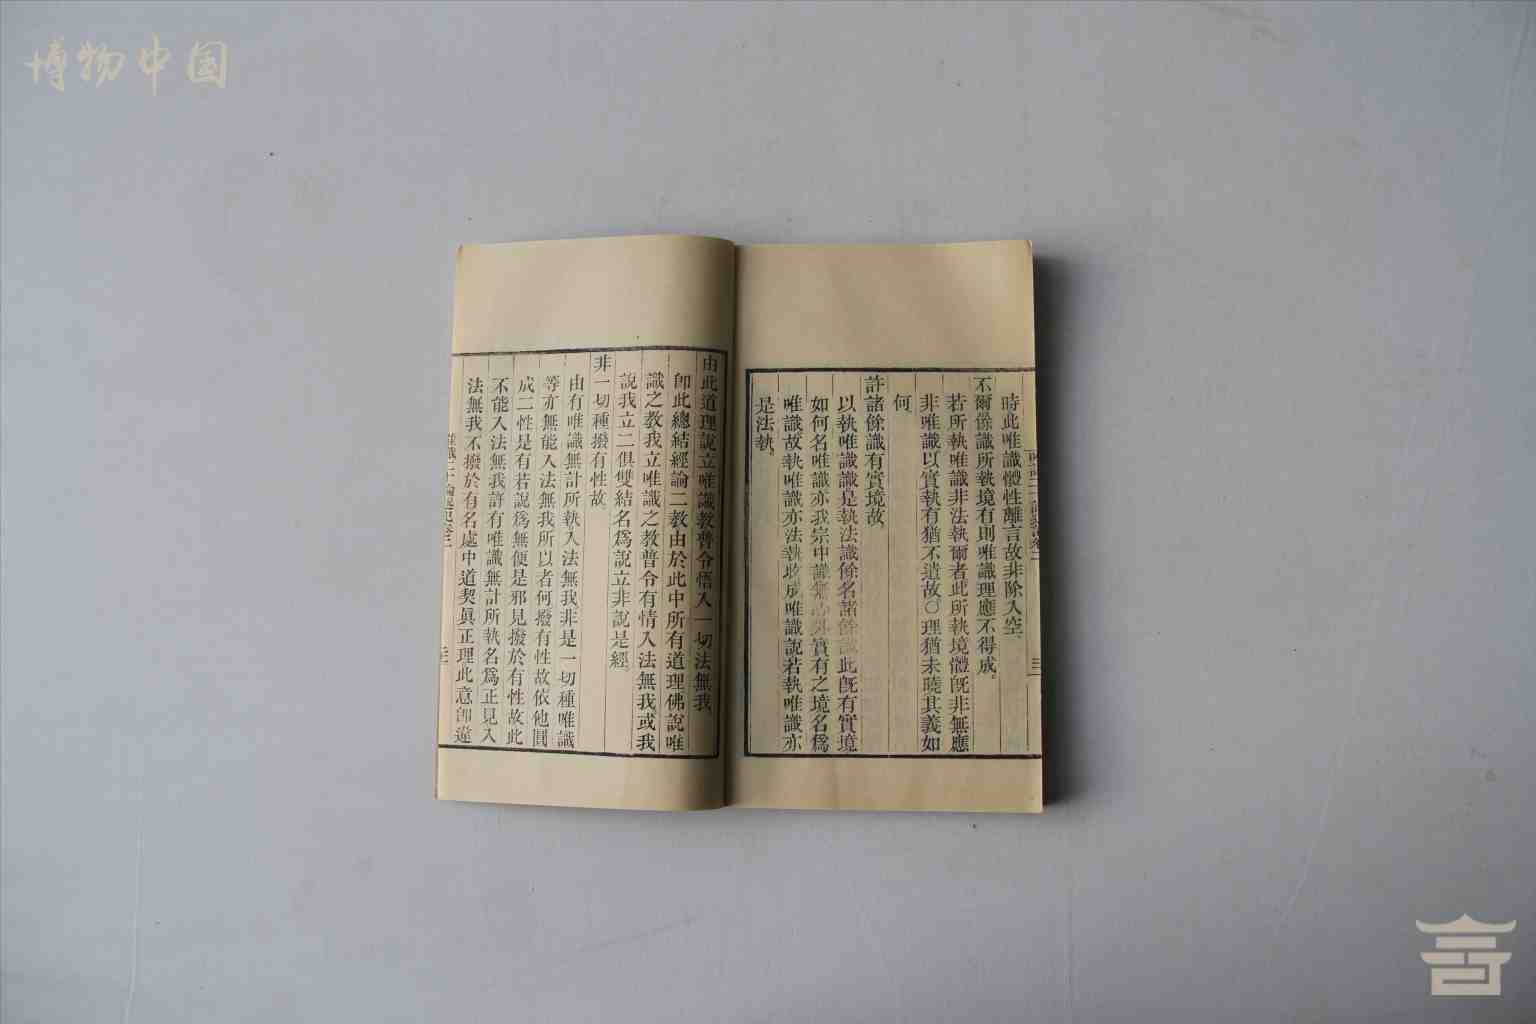 博物中国
時此唯識體性離言故非除入空、
不爾餘識所執境有則唯識理應不得成。
若所執唯識非法執爾者此所執境體旣非無應
非唯識以實執有猶不遣故〇理猶未曉其義如
何、
許諸餘識有實境故、
以執唯識識是執法識餘名諸餘識此旣有實境
如何名唯識亦我宗中識心外實有之境名爲
唯識故執唯識亦法執收成唯識說若執唯識亦
是法執。
由此道理說立唯識教普令悟入一切法無我、
卽此總結經論二教由於此中所有道理佛說唯
識之教我立唯識之教普令有情入法無我或我
說我立二俱雙結名爲說立非說是經、
非一切種撥有性故、
由有唯識無計所執入法無我非是一切種唯識
等亦無能入法無我所以者何撥有性故依他圓
成二性是有若說爲無便是邪見撥於有性故此
不能入法無我許有唯識無計所執名爲正見入
法無我不撥於有名處中道契眞正理此意卽違
唯識二十論述記卷三